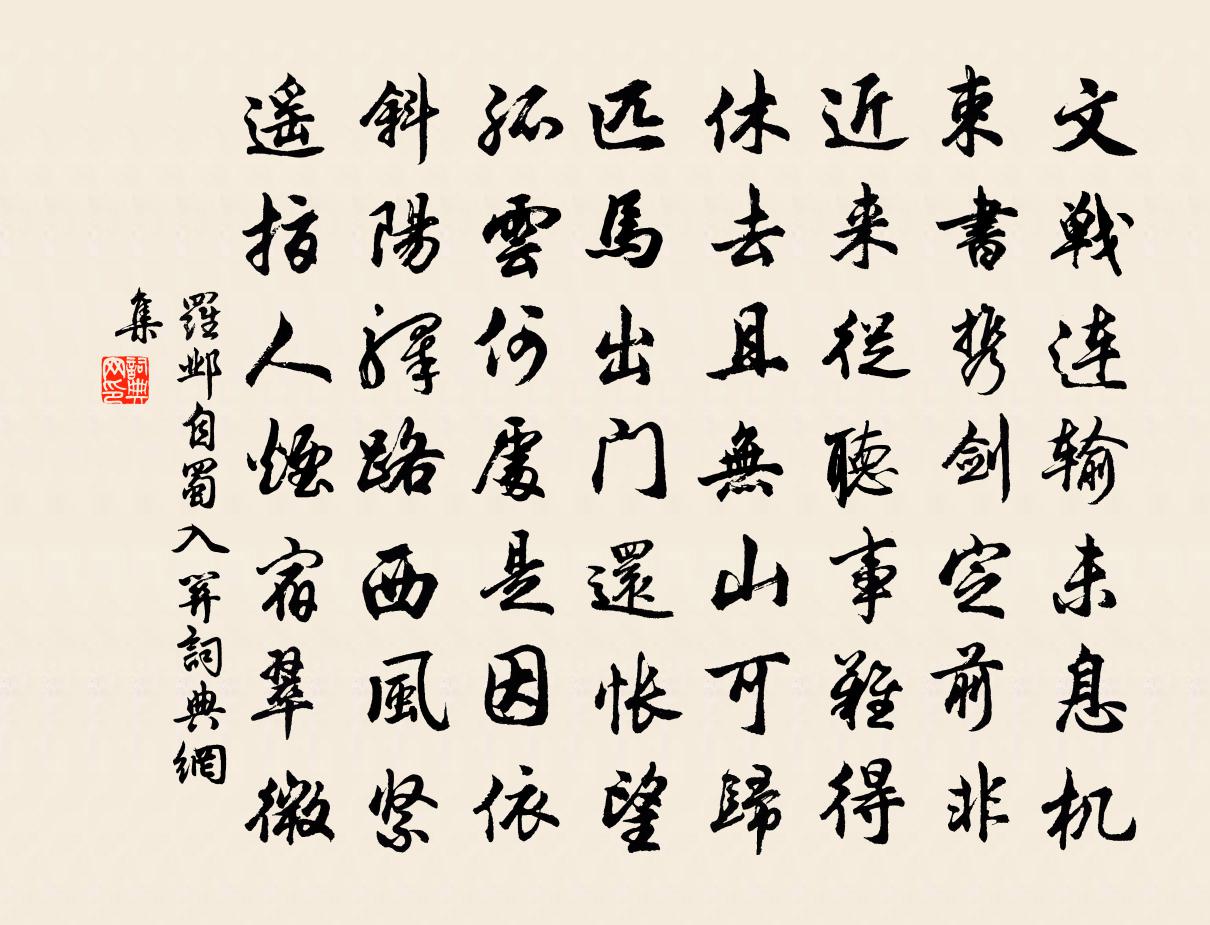 文戰连输未息机
束書携剑定前非
近来從聽事難得
休去且無山可歸
匹馬出门還悵望
孤雲何處是因依
斜陽驛路西風紧
遥指人煙宿翠微
羅邺自蜀入關詞典網
集
詞典网印